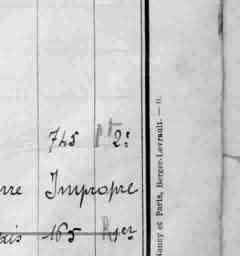 745 Pt 2:
rre Impropre
ais 165 R 1er
Nancy et Paris, Berger-Levrault. — 9.